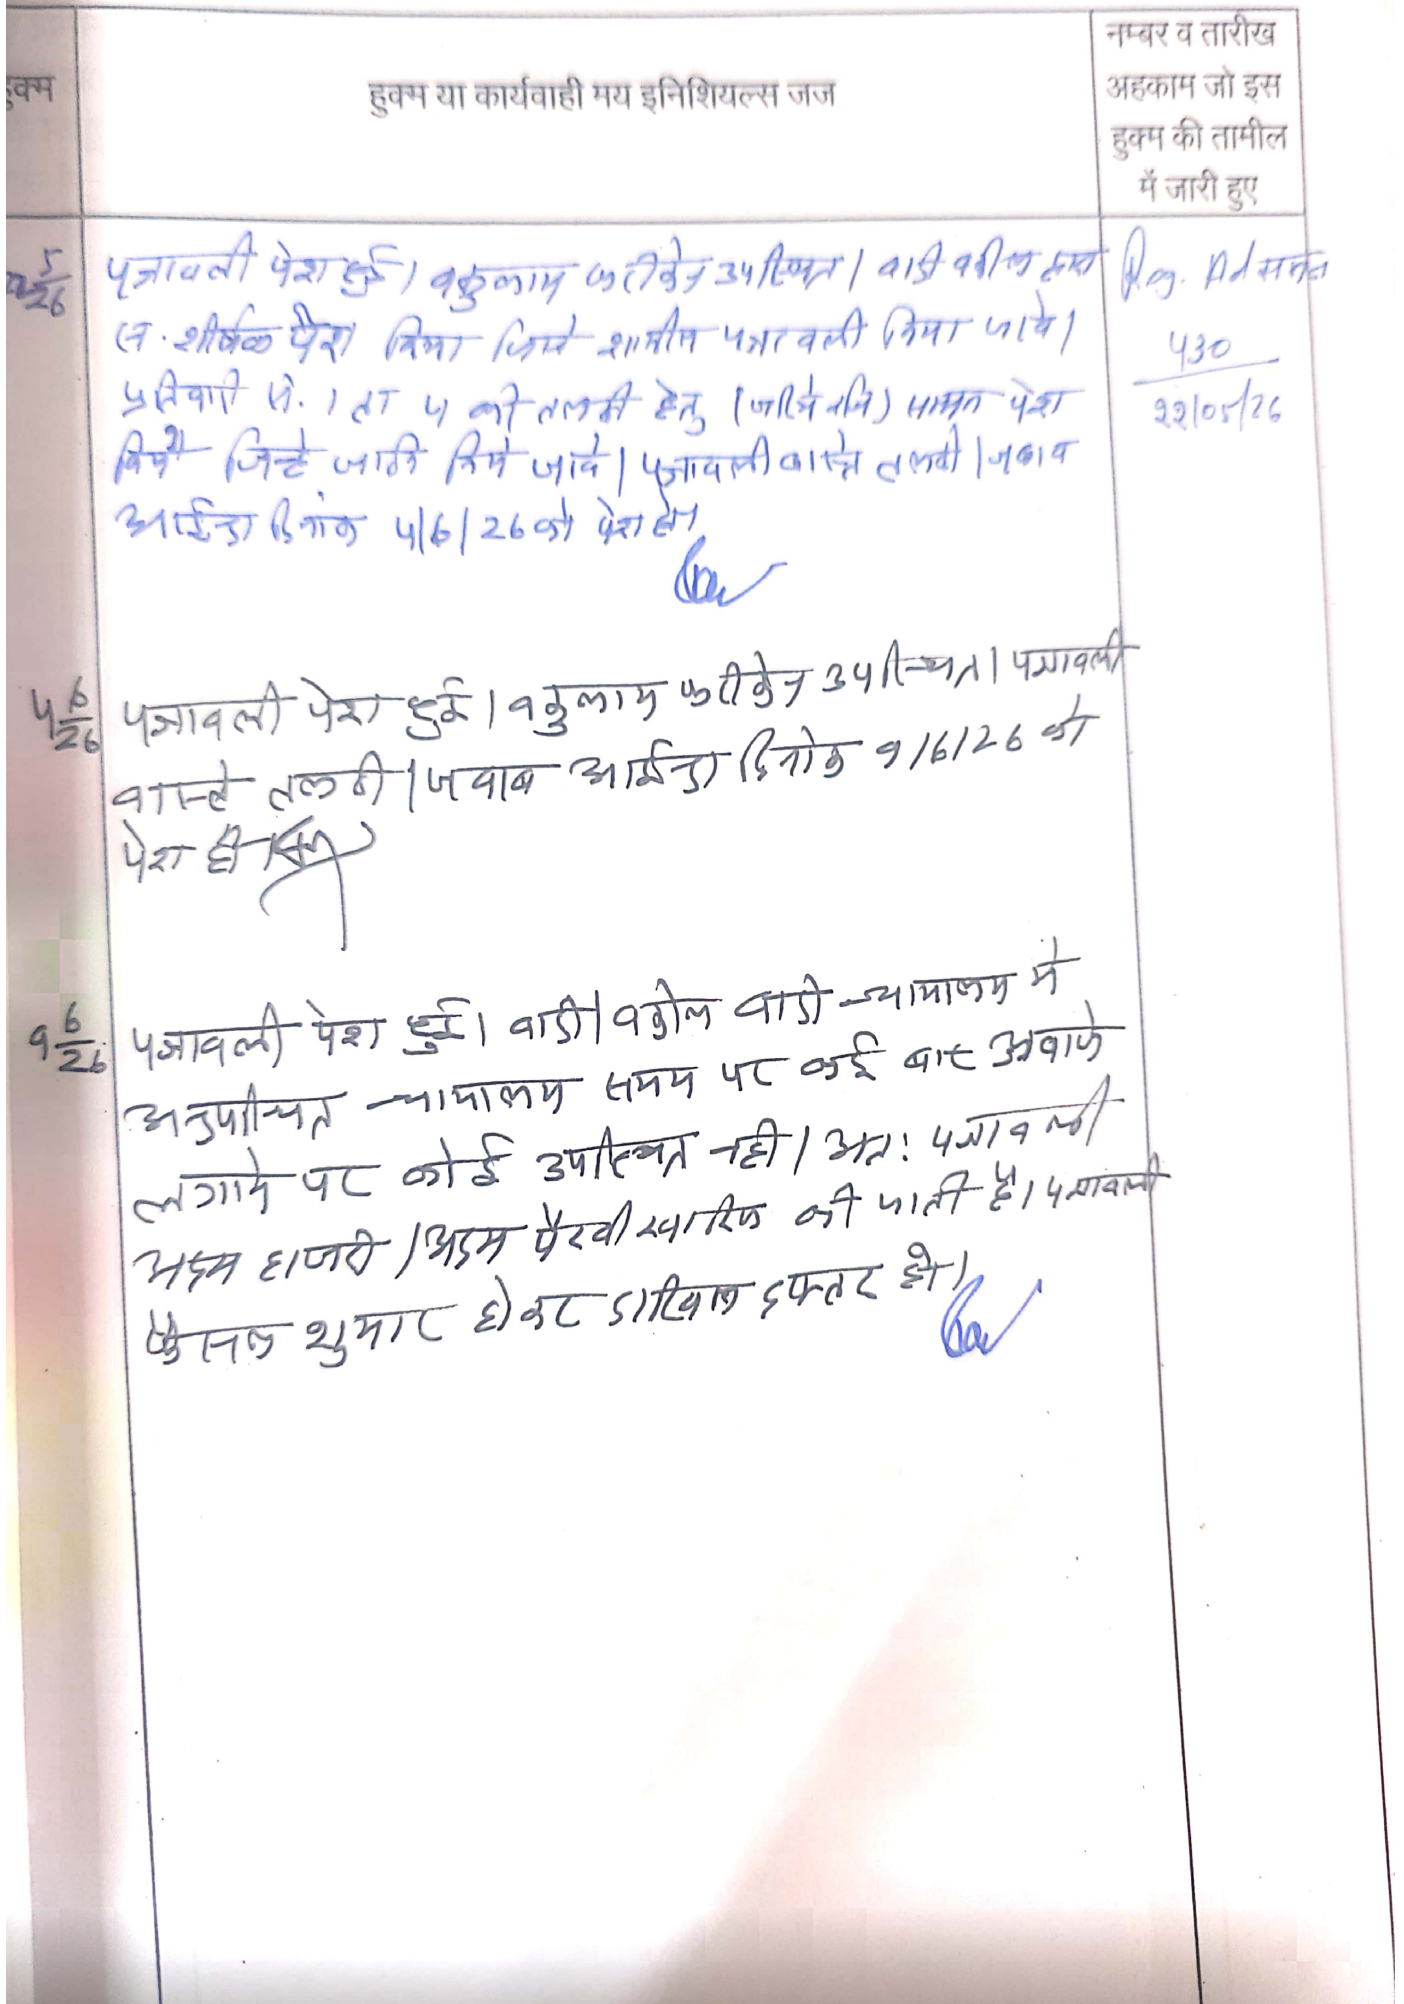 हुक्म
हुक्म या कार्यवाही मय इनिशियल्स जज
नम्बर व तारीख
अहकाम जो इस
हुक्म की तामील
में जारी हुए
5/26
पत्रावली पेश हुई। वकुलाय फरीकेन उपस्थित। वादी वकील द्वारा
शीर्षक पेश किया जिसे शामील पत्रावली किया जावे।
प्रतिवादी सं. 1 ता 4 की तलबी हेतु (जरिये रजि) सम्मन पेश
किये जिन्हे जारी किये जावे। पत्रावली वास्ते तलबी/जवाब
आईन्दा दिनांक 4/6/26 को पेश हो।
Reg. Ad सम्मन
430
22/05/26
4 6/26
पत्रावली पेश हुई। वकुलाय फरीकेन उपस्थित। पत्रावली
वास्ते तलबी/जवाब आईन्दा दिनांक 9/6/26 को
पेश हो।
9 6/26
पत्रावली पेश हुई। वादी/वकील वादी न्यायालय में
अनुपस्थित न्यायालय समय पर कई बार आवाजे
लगाये पर कोई उपस्थित नही। अतः पत्रावली
अदम हाजरी/अदम पैरवी खारिज की जाती है। पत्रावली
फैसल शुमार होकर दाखिल दफ्तर हो।